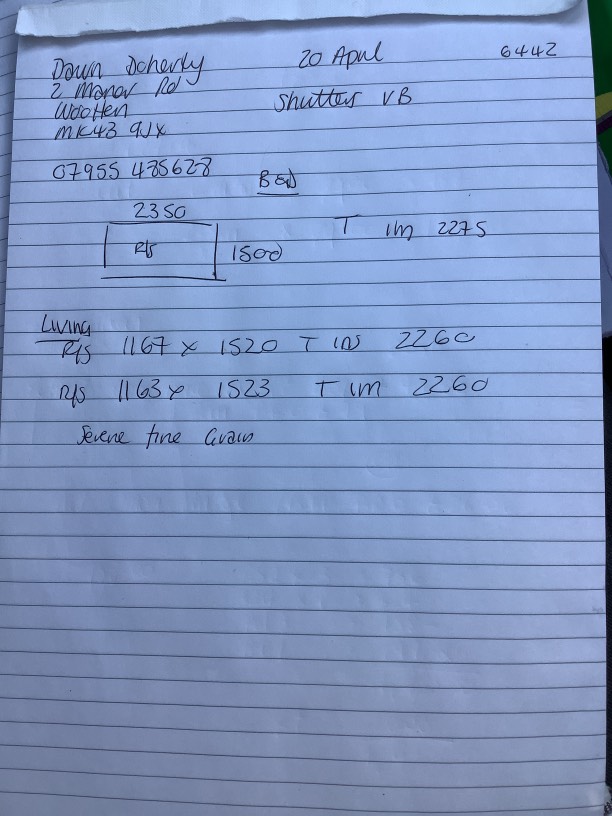 Dawn Doherty 20 April 6442
2 Manor Rd Shutters VB
Wootten
MK43 9JX
07955 485628
Bed
2350
R/S 1500 T 1m 2275
Living
R/S 1167 x 1520 T 2260
R/S 1163 x 1523 T 1m 2260
Serene fine Grain